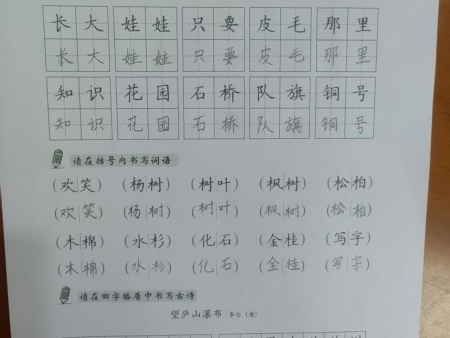 长大 娃娃 只要 皮毛 那里
长大 娃娃 只要 皮毛 那里
知识 花园 石桥 队旗 铜号
知识 花园 石桥 队旗 铜号
请在括号内书写词语
(欢笑) (杨树) (树叶) (枫树) (松柏)
(欢笑) (杨树) (树叶) (枫树) (松柏)
(木棉) (水杉) (化石) (金桂) (写字)
(木棉) (水杉) (化石) (金桂) (写字)
请在田字格居中书写古诗
望庐山瀑布 李白(唐)